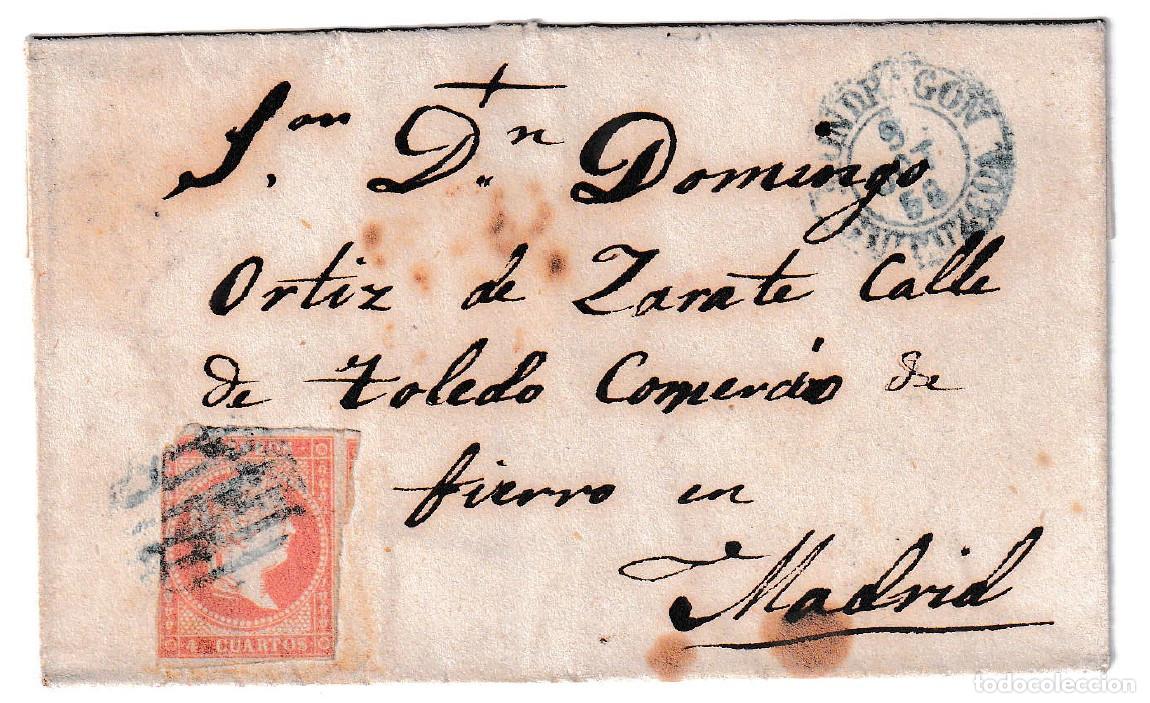 Sᵒⁿ. Dⁿ. Domingo
Ortiz de Zarate Calle
de toledo Comercio de
fierro en
Madrid
MONDRAGON
58
4 CUARTOS
todocoleccion